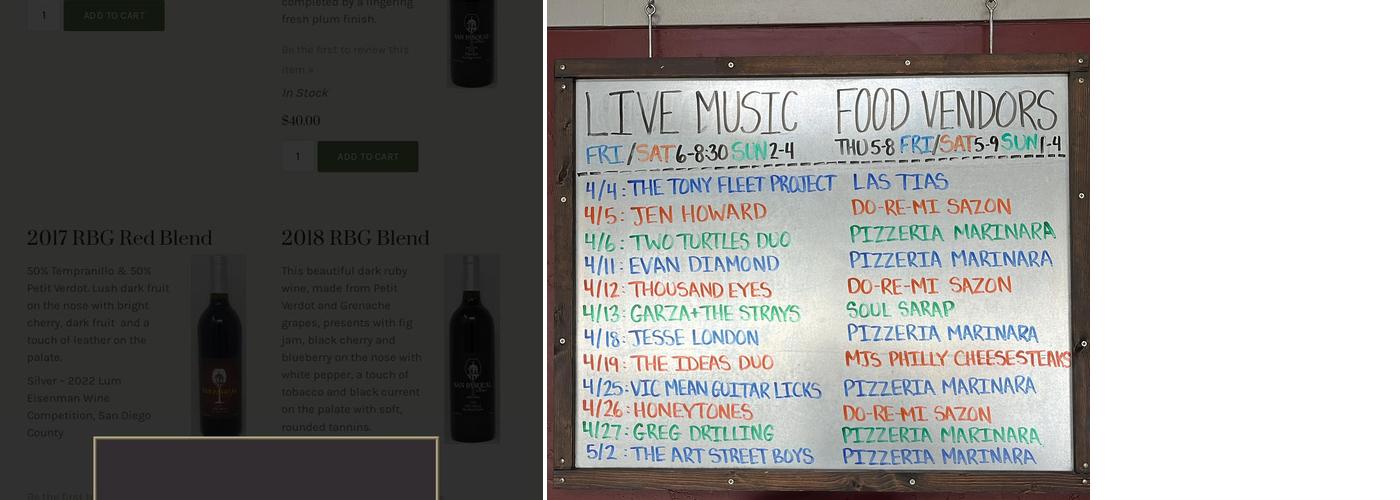 1
ADD TO CART
completed by a lingering
fresh plum finish.
Be the first to review this
item »
In Stock
$40.00
1
ADD TO CART
2017 RBG Red Blend
50% Tempranillo & 50%
Petit Verdot. Lush dark fruit
on the nose with bright
cherry, dark fruit and a
touch of leather on the
palate.
Silver – 2022 Lum
Eisenman Wine
Competition, San Diego
County
2018 RBG Blend
This beautiful dark ruby
wine, made from Petit
Verdot and Grenache
grapes, presents with fig
jam, black cherry and
blueberry on the nose with
white pepper, a touch of
tobacco and black current
on the palate with soft,
rounded tannins.
SAN PASQUAL
LIVE MUSIC FOOD VENDORS
FRI/SAT 6-8:30 SUN 2-4 THU 5-8 FRI/SAT 5-9 SUN 1-4
4/4: THE TONY FLEET PROJECT LAS TIAS
4/5: JEN HOWARD DO-RE-MI SAZON
4/6: TWO TURTLES DUO PIZZERIA MARINARA
4/11: EVAN DIAMOND PIZZERIA MARINARA
4/12: THOUSAND EYES DO-RE-MI SAZON
4/13: GARZA+THE STRAYS SOUL SARAP
4/18: JESSE LONDON PIZZERIA MARINARA
4/19: THE IDEAS DUO MJS PHILLY CHEESESTEAKS
4/25: VIC MEAN GUITAR LICKS PIZZERIA MARINARA
4/26: HONEYTONES DO-RE-MI SAZON
4/27: GREG DRILLING PIZZERIA MARINARA
5/2: THE ART STREET BOYS PIZZERIA MARINARA